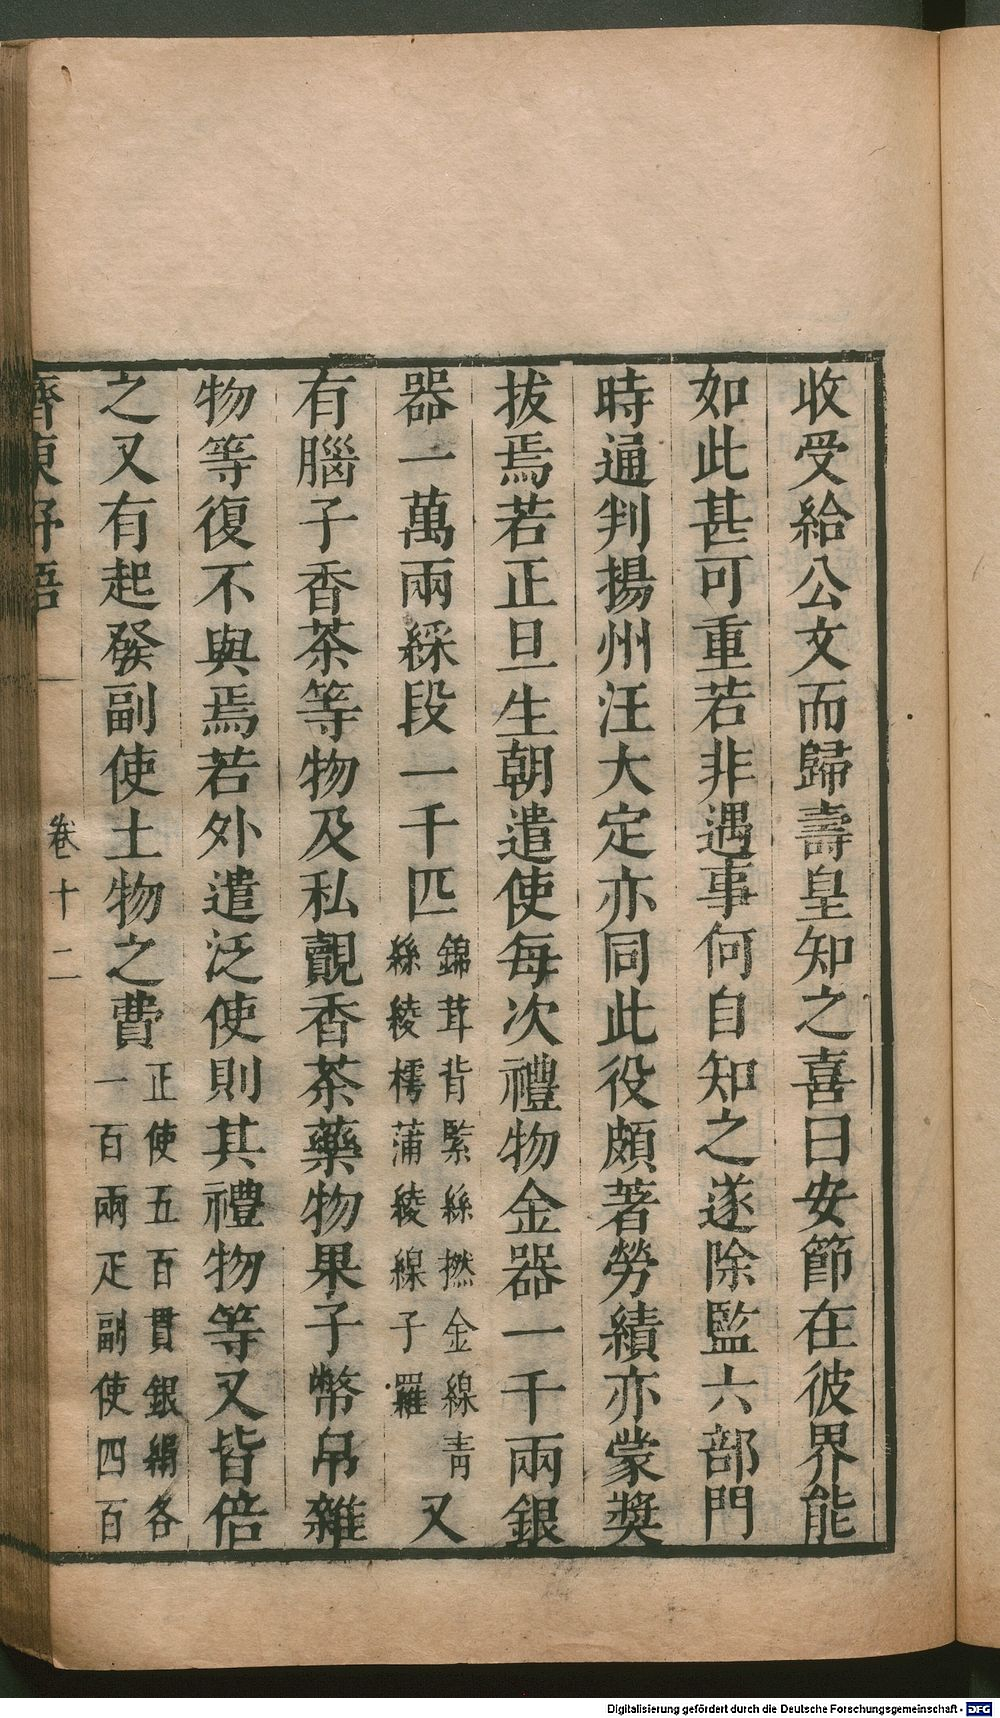 收受給公文而歸壽皇知之喜曰安節在彼界能
如此甚可重若非遇事何自知之遂除監六部門
時通判揚州汪大定亦同此役頗著勞績亦蒙奬
拔焉若正旦生朝遣使每次禮物金器一千兩銀
器一萬兩綵段一千匹錦茸背緊絲撚金線青絲綾樗蒲綾線子羅又
有腦子香茶等物及私覿香茶藥物果子幣帛雜
物等復不與焉若外遣泛使則其禮物等又皆倍
之又有起發副使土物之費正使五百貫銀絹各一百兩疋副使四百
齊東野語 卷十二
Digitalisierung gefördert durch die Deutsche Forschungsgemeinschaft - DFG